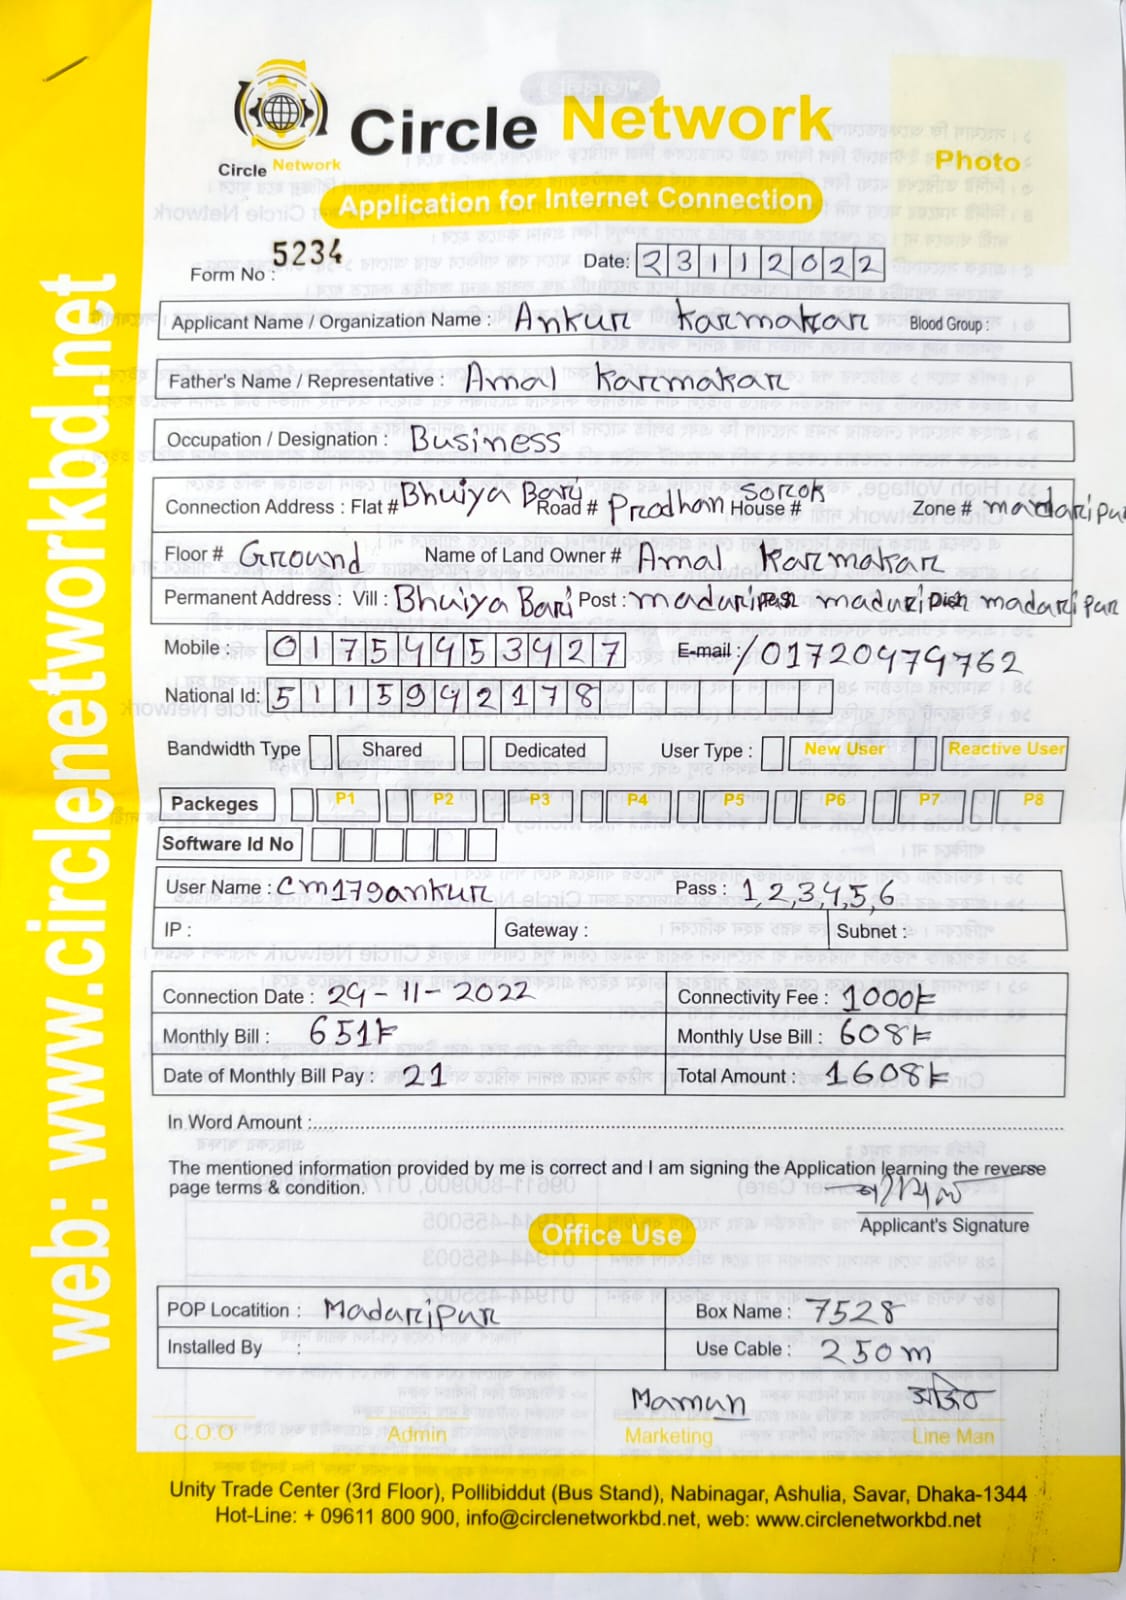 web: www.circlenetworkbd.net
Circle Network
Circle Network
Photo
Application for Internet Connection
Form No : 5234
Date: 23112022
Applicant Name / Organization Name : Ankur Karmakar Blood Group :
Father's Name / Representative : Amal Karmakar
Occupation / Designation : Business
Connection Address : Flat # Bhuiya Bari Road # Prodhan Sorok House # Zone # madaripur
Floor # Ground Name of Land Owner # Amal Karmakar
Permanent Address : Vill : Bhuiya Bari Post : madaripur madaripur Dist madaripur
Mobile : 01754453427 E-mail : /01720479762
National Id: 5115942178
Bandwidth Type Shared Dedicated User Type : New User Reactive User
Packeges P1 P2 P3 P4 P5 P6 P7 P8
Software Id No
User Name : Cm179ankur Pass : 1,2,3,4,5,6
IP : Gateway : Subnet :
Connection Date : 29-11-2022 Connectivity Fee : 1000/=
Monthly Bill : 651/= Monthly Use Bill : 608/=
Date of Monthly Bill Pay : 21 Total Amount : 1608/=
In Word Amount :
The mentioned information provided by me is correct and I am signing the Application learning the reverse
page terms & condition.
Applicant's Signature
Office Use
POP Locatition : Madaripur Box Name : 7528
Installed By : Use Cable : 250m
Maman অজিত
C.O.O Admin Marketing Line Man
Unity Trade Center (3rd Floor), Pollibiddut (Bus Stand), Nabinagar, Ashulia, Savar, Dhaka-1344
Hot-Line: + 09611 800 900, info@circlenetworkbd.net, web: www.circlenetworkbd.net